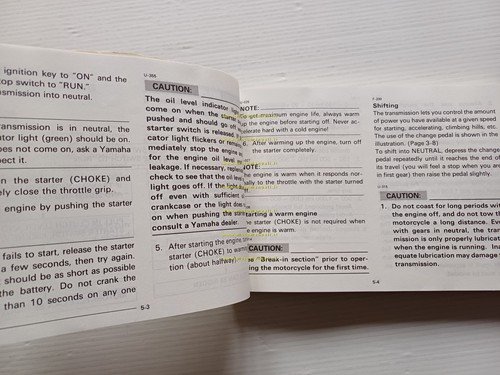 ignition key to "ON" and the
top switch to "RUN."
smission into neutral.
ransmission is in neutral, the
ator light (green) should be on.
oes not come on, ask a Yamaha
pect it.
n the starter (CHOKE) and
ely close the throttle grip.
engine by pushing the starter
fails to start, release the starter
a few seconds, then try again.
should be as short as possible
the battery. Do not crank the
than 10 seconds on any one
5-3
U-355
CAUTION:
The oil level indicator light
come on when the starter
pushed and should go off
starter switch is released. If
cator light flickers or remai
mediately stop the engine
for the engine oil level
leakage. If necessary, replen
check to see that the oil lev
light goes off. If the light
off even with sufficient
crankcase or the light does
on when pushing the star
consult a Yamaha dealer.
5. After starting the engine,
starter (CHOKE) to warm
tion (about halfway).
NOTE:
For maximum engine life, always warm
up the engine before starting off. Never ac-
celerate hard with a cold engine!
6. After warming up the engine, turn off
the starter completely.
e engine is warm when it responds nor-
ally to the throttle with the starter turned
tarting a warm engine
e starter (CHOKE) is not required when
e engine is warm.
CAUTION:
"Break-in section" prior to oper-
ing the motorcycle for the first time.
Shifting
The transmission lets you control the amount
of power you have available at a given speed
for starting, accelerating, climbing hills, etc.
The use of the change pedal is shown in the
illustration. (Page 3-8)
To shift into NEUTRAL, depress the change
pedal repeatedly until it reaches the end of
its travel (you will feel a stop when you are
in first gear) then raise the pedal slightly.
CAUTION:
1. Do not coast for long periods wit
the engine off, and do not tow t
motorcycle a long distance. Eve
with gears in neutral, the tran
mission is only properly lubricat
when the engine is running. Ina
equate lubrication may damage
transmission.
5-4